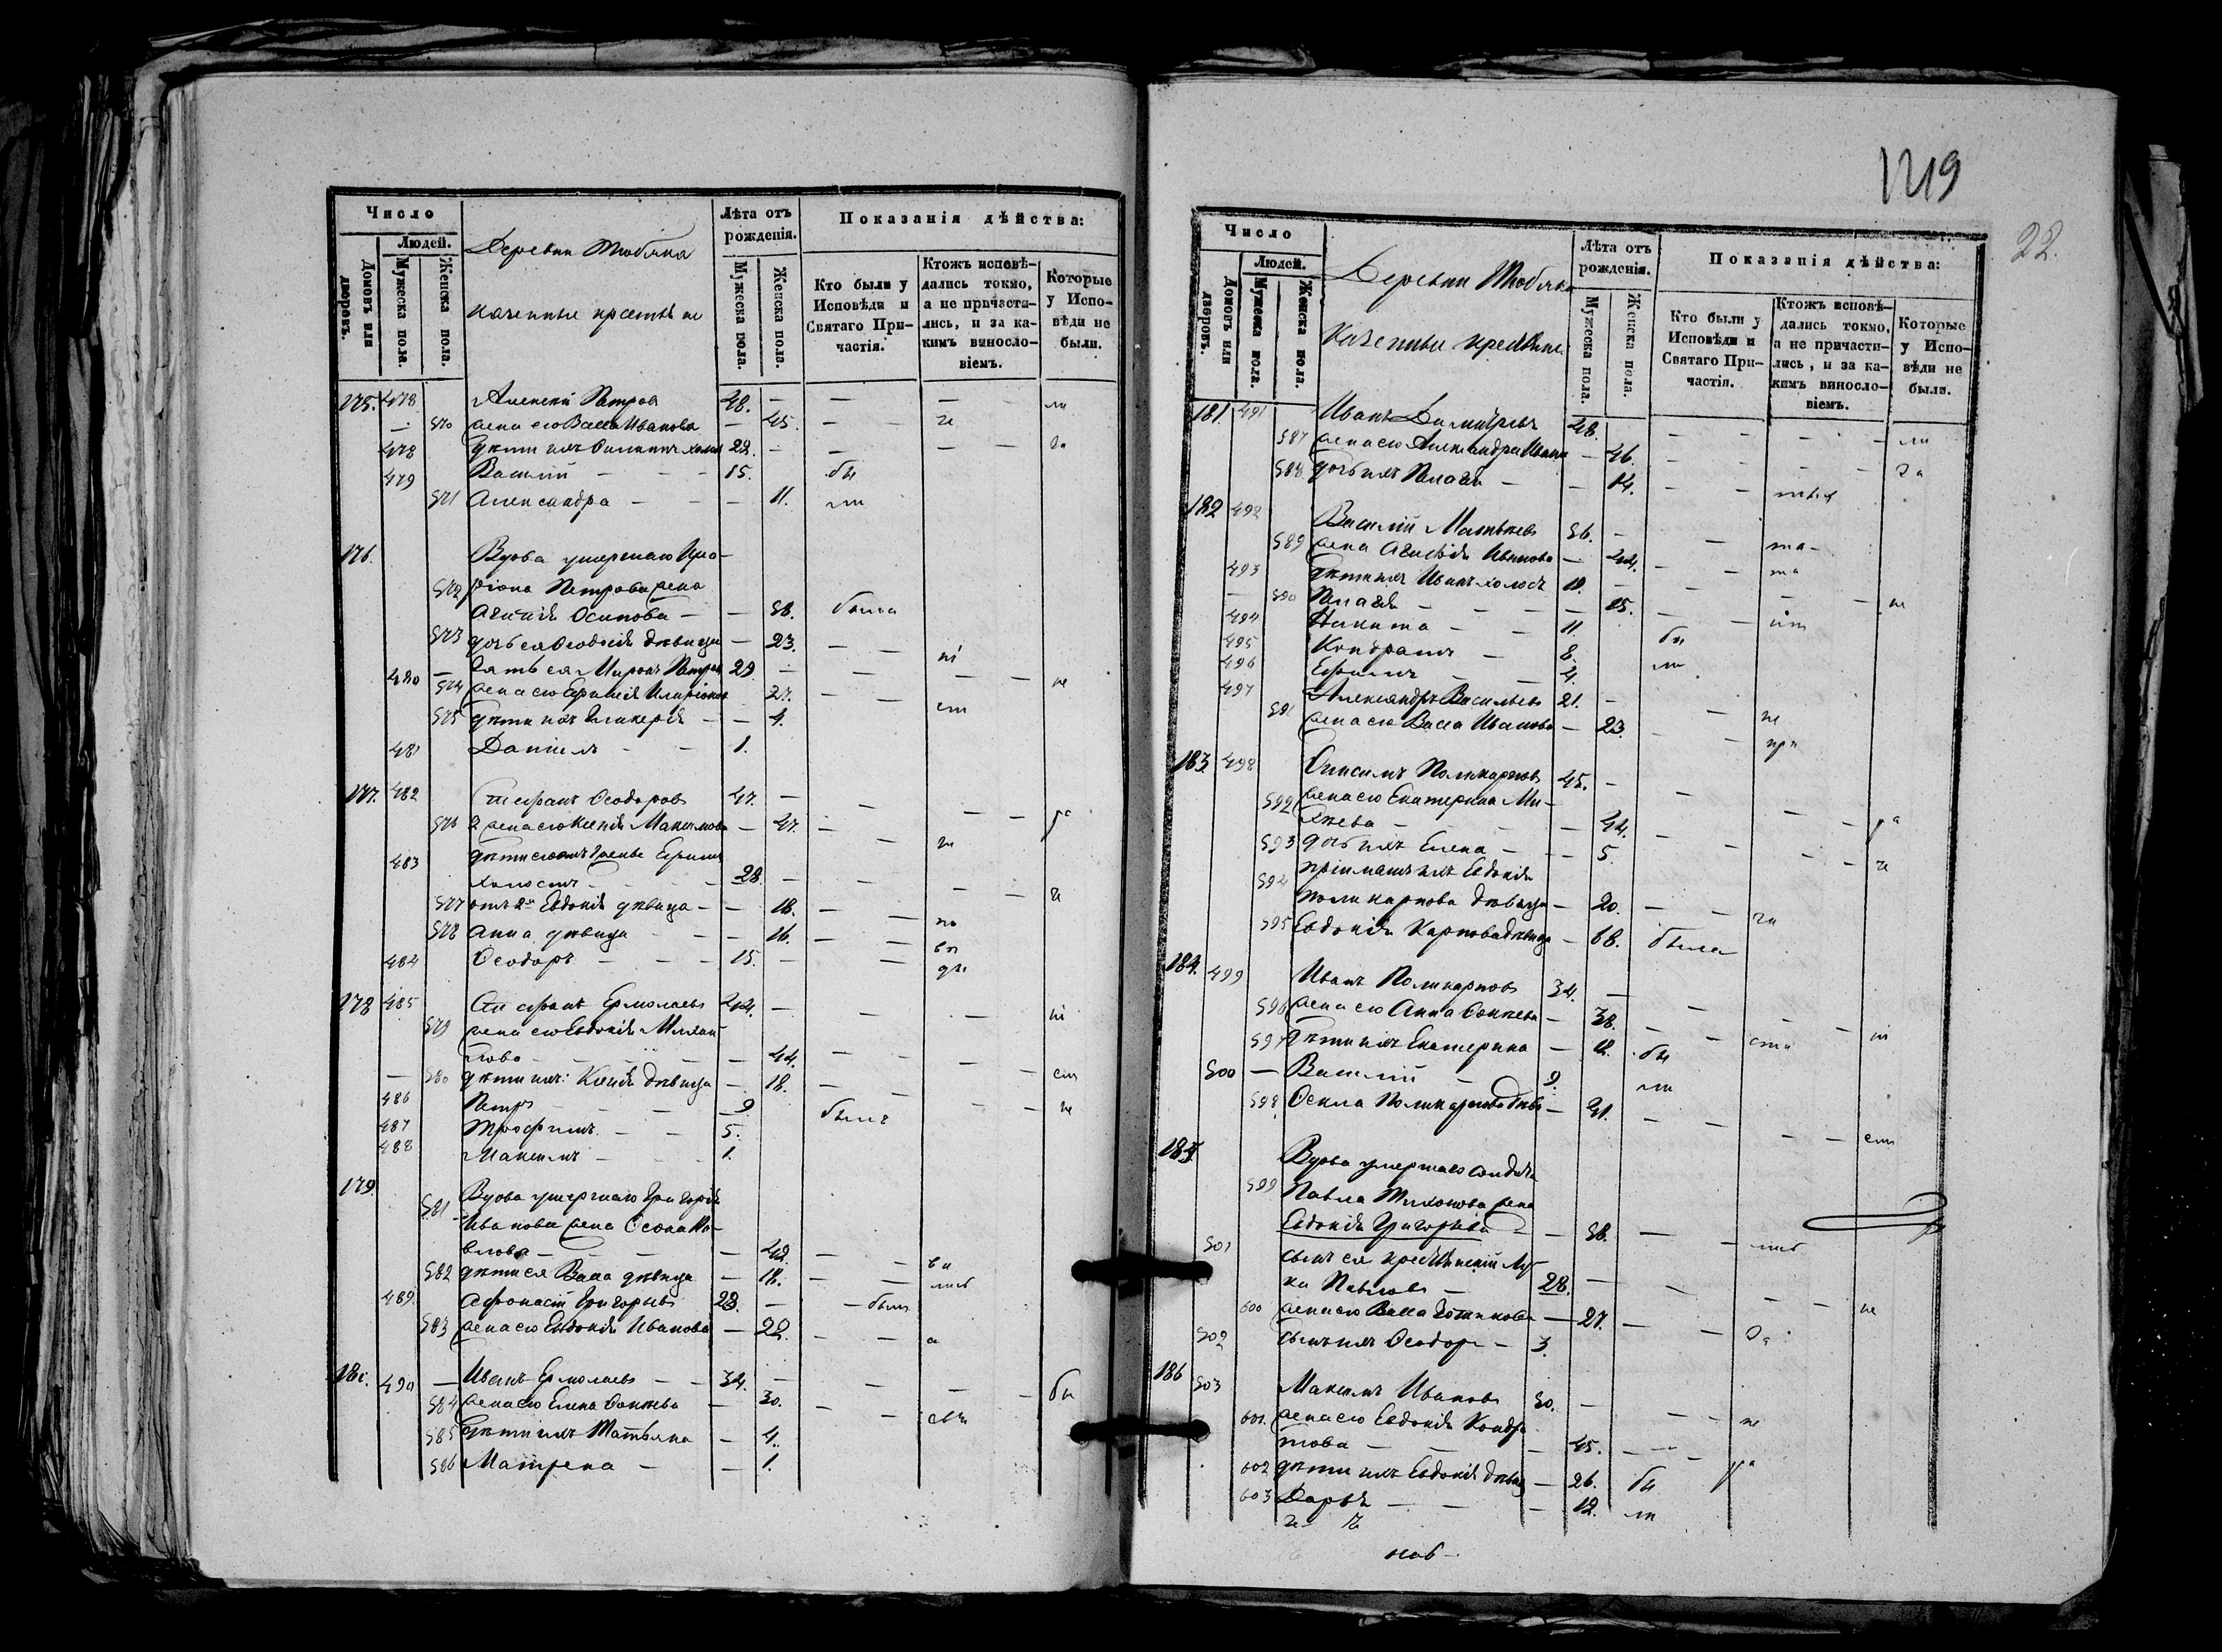 Число
Людей.
Домовъ или дворовъ.
Мужеска пола.
Женска пола.
Деревни Тюбяка
казенные крестьяне
Лѣта отъ рожденія.
Мужеска пола.
Женска пола.
Показанія дѣйства:
Кто были у Исповѣди и Святаго Причастія.
Ктожъ исповѣдались токмо, а не причастились, и за какимъ винословіемъ.
Которые у Исповѣди не были.
175. 478 Алексѣй Петровъ 48. — — — ли
— 570 жена его Васса Иванова — 45. — — че
478 дѣти ихъ Филиппъ холос 22. — — —
479 Василій — — — 15. бы
571 Александра — — — 11. ли
176. Вдова умершаго Ила-
572 ріона Петрова жена
Агафія Осипова — — 58. была
573 дочь ея Ѳеодосія дѣвица — 23. — —
480 — зять ея Миронъ Петров 29 — — — не
574 жена его Ефимія Иларіонов 27. — —
575 дѣти ихъ Гликерія — — 4.
481 Даніилъ — — 1.
177. 482 Стефанъ Ѳеодоровъ 47. — — — —
576 2 жена его Ксенія Максимова — 47. — —
483 дѣти его отъ 1 жены Ефимъ
холостъ — — — 28. — — — —
577 отъ 2й Евдокія дѣвица — — 18. — — по
578 Анна дѣвица — — 16. — —
484 Ѳеодоръ — — — 15. — —
178 485 Стефанъ Ермолаевъ 44. — — —
579 жена его Евдокія Михаи-
лова — — — — — 44. — — —
— 580 дѣти ихъ: Ксенія дѣвица — 18. — — —
486 Петръ — — — 9 былъ
487 Трофимъ — — 5.
488 Максимъ — — 1.
179. Вдова умершаго Григорія
581 Иванова жена Ѳеокла Па-
влова — — — — 49. — —
582 дѣти ея Васса дѣвица — 18. — —
489. Афонасій Григорьевъ 23. — — были
583 жена его Евдокія Иванова — 22. — — а
180. 490 — Иванъ Ермолаевъ — — 34. — — — — бы
584 жена его Елена Фокеева — 30. — —
585 дѣти ихъ Татьяна — 4.
586 Матрена — — 1.
1219
22.
Число
Людей.
Домовъ или дворовъ.
Мужеска пола.
Женска пола.
Деревни Тюбяка
Казенные крестьяне
Лѣта отъ рожденія.
Мужеска пола.
Женска пола.
Показанія дѣйства:
Кто были у Исповѣди и Святаго Причастія.
Ктожъ исповѣдались токмо, а не причастились, и за какимъ винословіемъ.
Которые у Исповѣди не были.
181. 491 Иванъ Димитріевъ 48. — — — — ли
587 жена его Александра Иванова — 46. — — — —
588 дочь ихъ Пелагія — — 14. — —
182 492 Василій Матвѣевъ 56. — —
589 жена Агафія Иванова — 44. — —
493 дѣти ихъ Иванъ холостъ 19. — — — — не
— 590 Пелагія — — — — 15. — —
494 Никита — — 11 бы
495 Кондратъ — 8. ли
496 Ефимъ — — 4.
497 Александръ Васильевъ 21. — — не
591 жена его Васса Иванова — 23. — — при
183. 498 Онисимъ Поликарповъ 45. — — — —
592 жена его Екатерина Ми-
хѣева — — — — 44. — — — —
593 дочь ихъ Елена — — — 5.
594 пріиматъ ихъ Евдокія
Поликарпова дѣвица — 20. — —
595 Евдокія Карпова дѣвица — 68. была
184. 499 Иванъ Поликарповъ 34. — — — —
596 жена его Анна Фокеева — 38. — —
597 дѣти ихъ Екатерина — 12. бы
500 — Василій — 9. ли
598 Ѳекла Поликарпова дѣв — 41. — — — —
185. Вдова умершаго солдата
599 Павла Тихонова жена
Евдокія Григорьева — — 58. — —
501 сынъ ея крестьянскій Лу-
ка Павловъ — 28. — — — — не
600 жена его Васса — 27. — —
502 сынъ ихъ Ѳеодоръ — 3.
186 503 Максимъ Ивановъ 50. — — — — не
601. жена его Евдокія Кондра
това — — — — 45. — —
602 дѣти ихъ Евдокія дѣвиц — 26. бы
603 Дарья — — — 12. ли